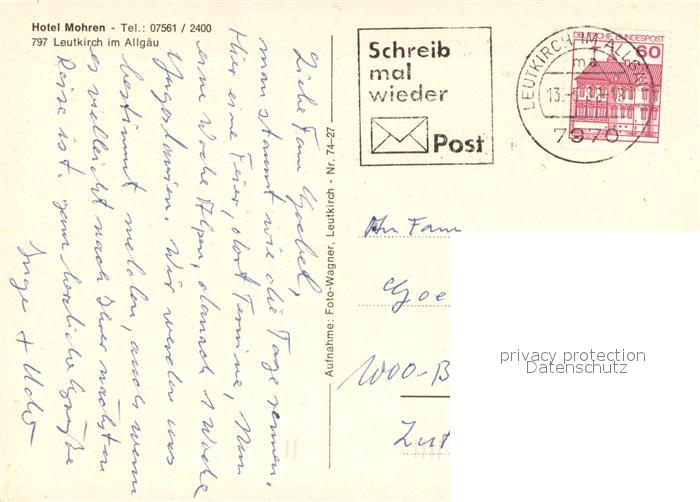 Hotel Mohren - Tel.: 07561 / 2400
797 Leutkirch im Allgäu
Liebe Fam Goebel,
man staunt wie die Tage rennen.
Hier eine Feier, dort Termine, Nun
eine Woche Alpen, danach 1 Woche
Jugoslawien. Wir werden uns
bestimmt melden, auch wenn
es vielleicht nach Ihrer nächsten
Reise ist. ganz herzliche Grüße
Inge +
Aufnahme: Foto-Wagner, Leutkirch - Nr. 74-27
Schreib
mal
wieder
Post
DEUTSCHE BUNDESPOST
60
LEUTKIRCH IM ALLGÄU
ma
13.
7970
An Fam
Goe
1000-B
privacy protection
Datenschutz